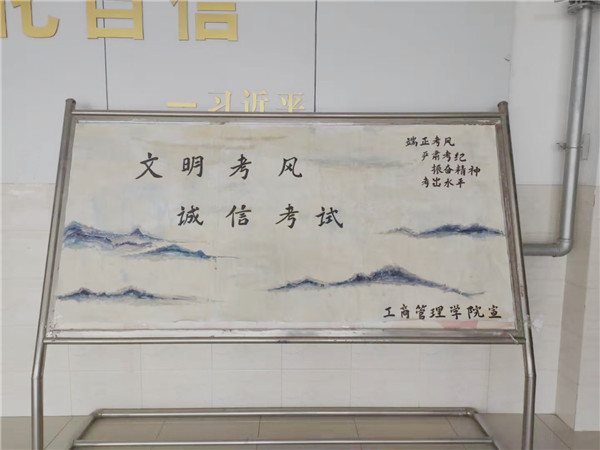 自信
一习近平
文明考风
诚信考试
端正考风
严肃考纪
振奋精神
考出水平
工商管理学院宣